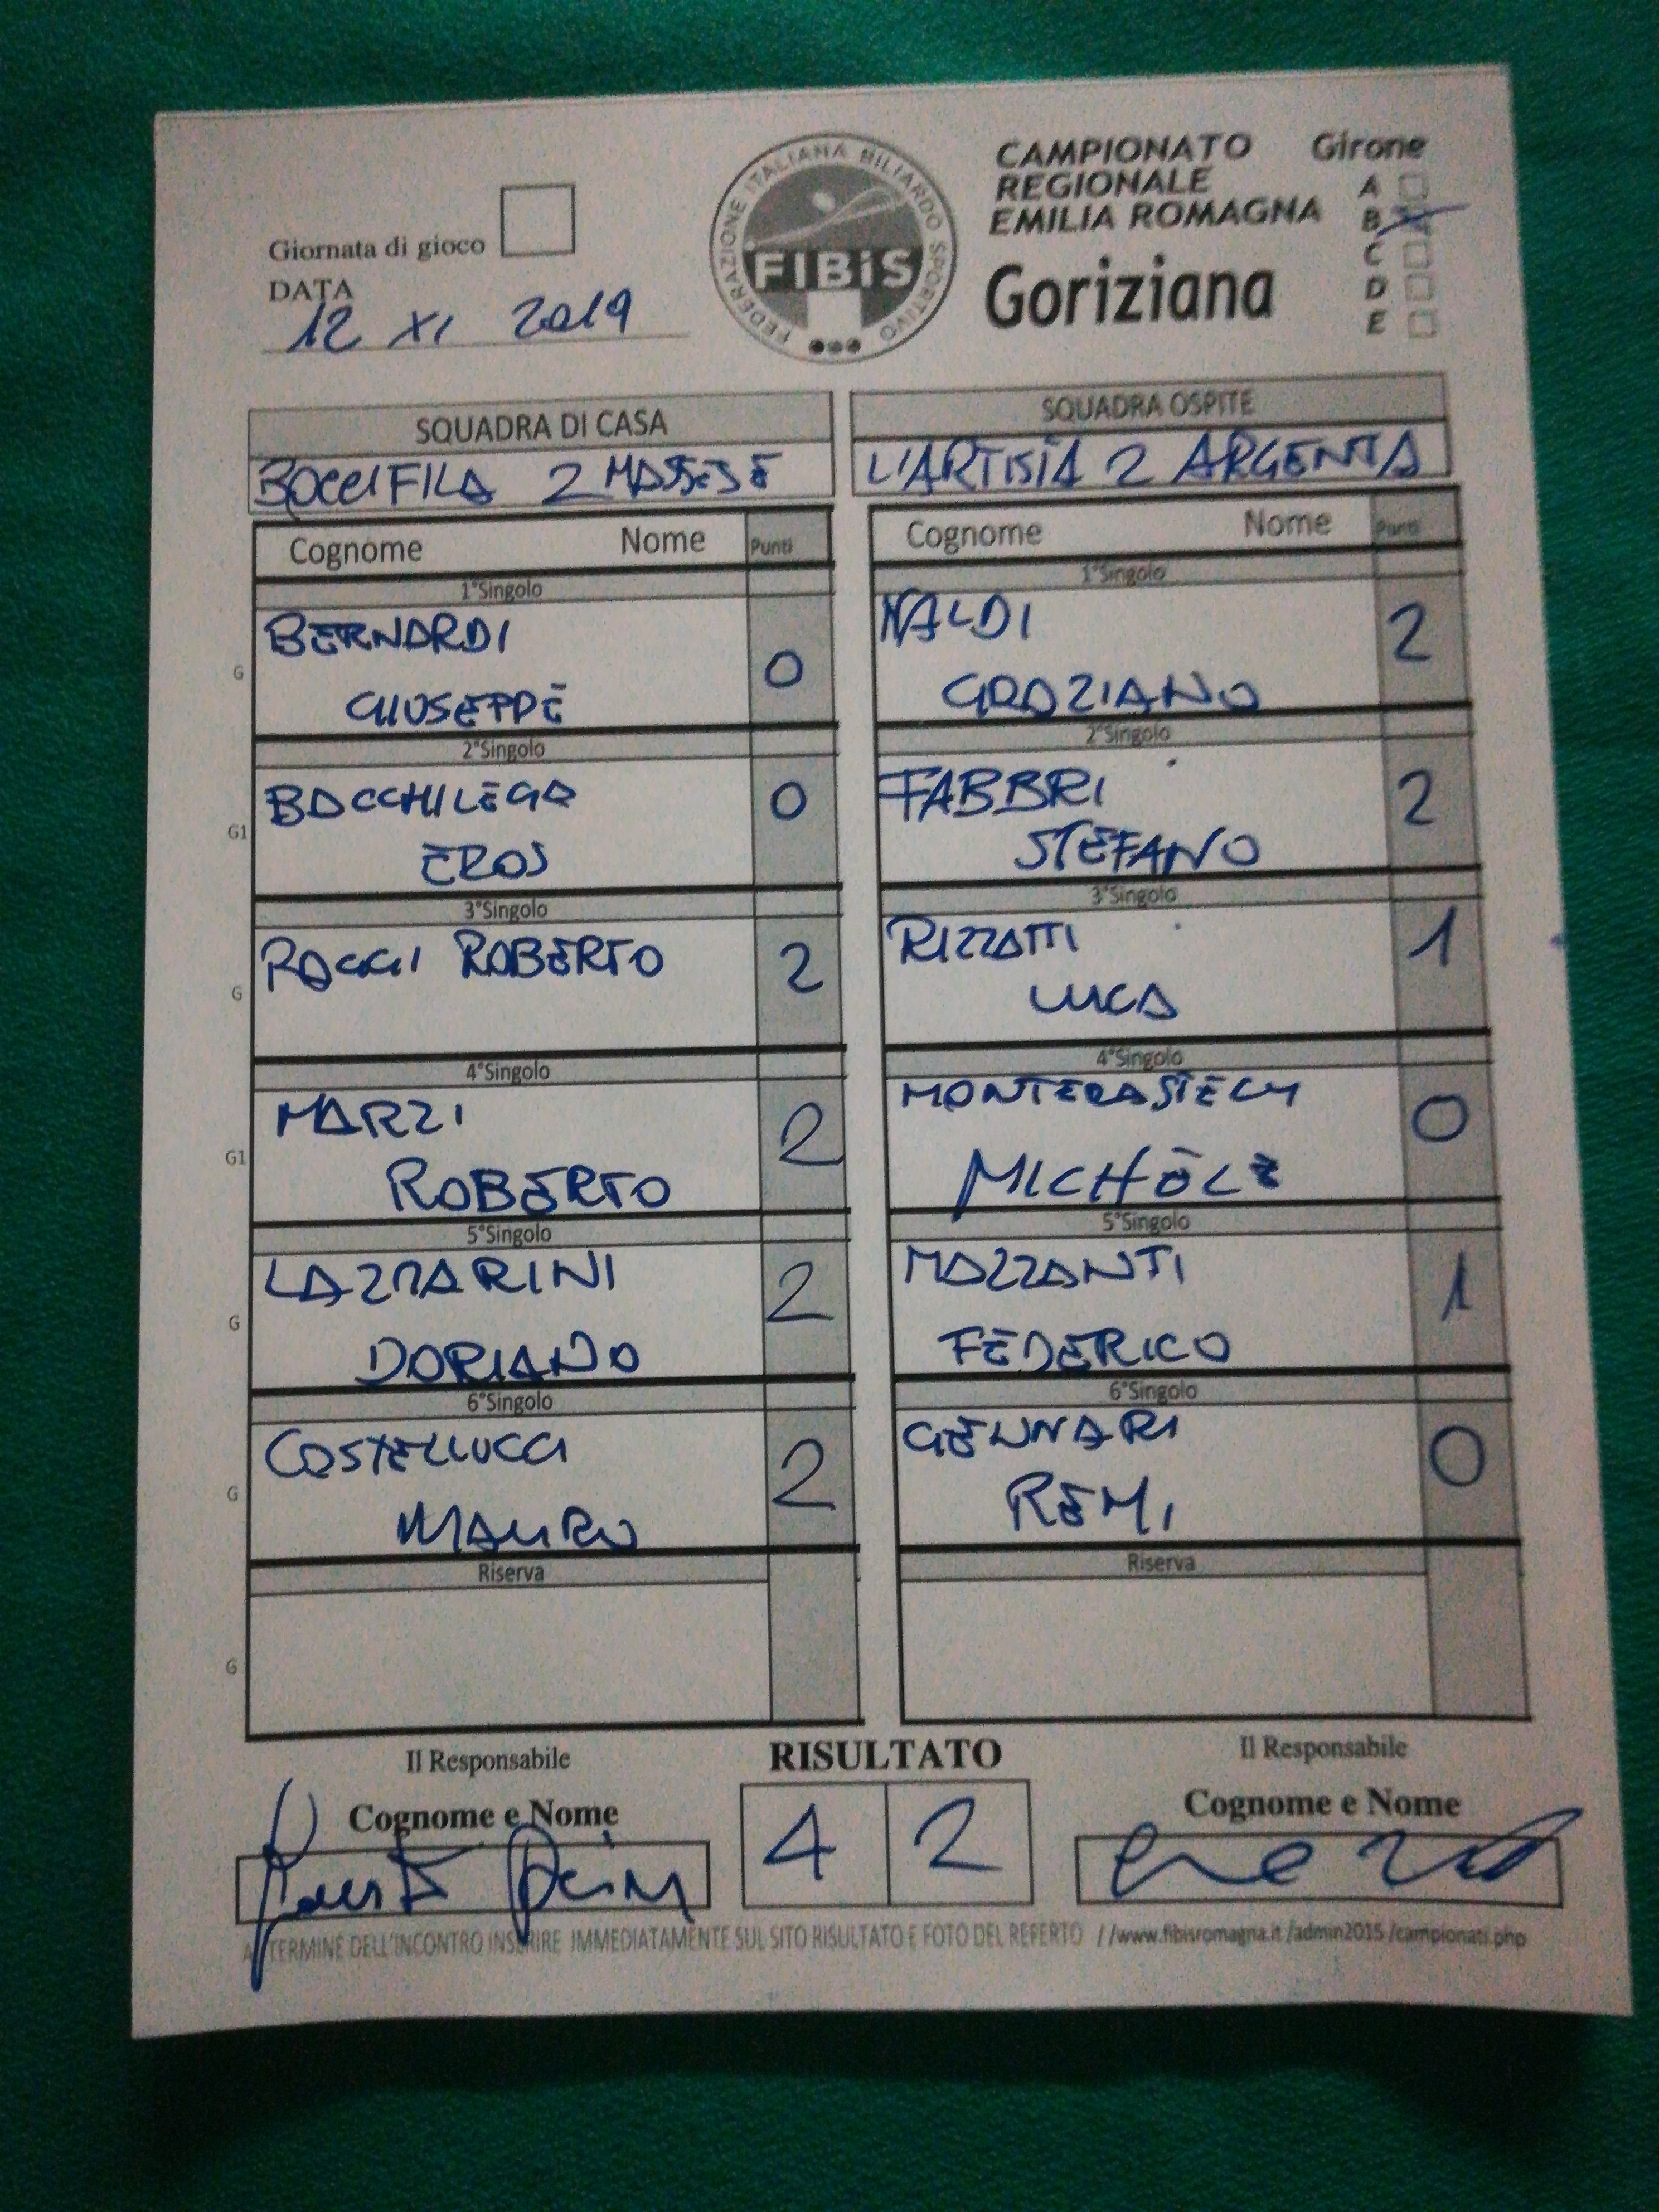 Giornata di gioco
DATA
12 XI 2019
FEDERAZIONE ITALIANA BILIARDO SPORTIVO
FIBiS
CAMPIONATO
REGIONALE
EMILIA ROMAGNA
Goriziana
Girone
A
B
C
D
E
SQUADRA DI CASA
BOCCIFILA 2 MASSESE
Cognome Nome Punti
1°Singolo
G
BERNARDI
GIUSEPPE
0
2°Singolo
G1
BACCHILEGA
EROS
0
3°Singolo
G
RAGGI ROBERTO
2
4°Singolo
G1
MARZI
ROBERTO
2
5°Singolo
G
LAZZARINI
DORIANO
2
6°Singolo
G
COSTELLUCCI
MAURO
2
Riserva
G
SQUADRA OSPITE
L'ARTISTA 2 ARGENTA
Cognome Nome Punti
1°Singolo
NALDI
GRAZIANO
2
2°Singolo
FABBRI
STEFANO
2
3°Singolo
RIZZATTI
LUCA
1
4°Singolo
MICHELE
0
5°Singolo
MAZZANTI
FEDERICO
1
6°Singolo
GENNARI
REMI
0
Riserva
Il Responsabile
Cognome e Nome
RISULTATO
4 2
Il Responsabile
Cognome e Nome
AL TERMINE DELL'INCONTRO INSERIRE IMMEDIATAMENTE SUL SITO RISULTATO E FOTO DEL REFERTO //www.fibisromagna.it /admin2015 /campionati.php